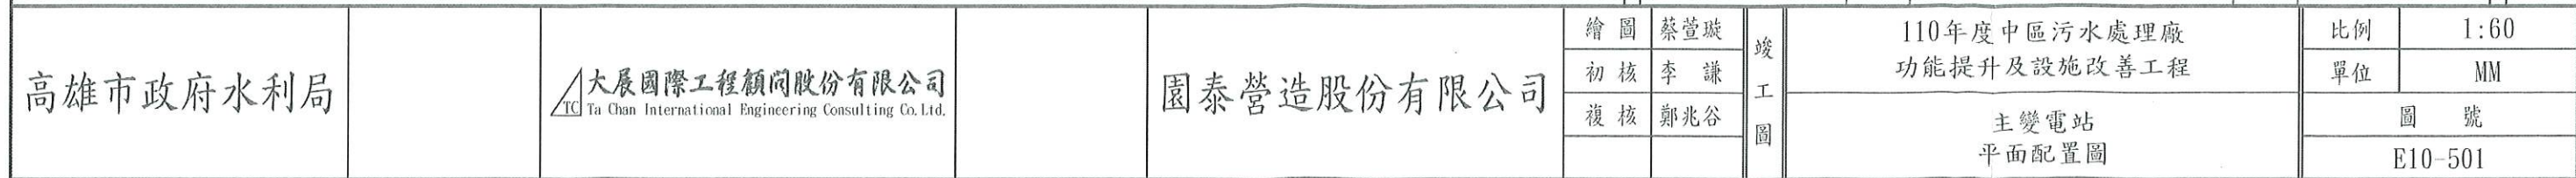 高雄市政府水利局
TC
大展國際工程顧問股份有限公司
Ta Chan International Engineering Consulting Co. Ltd.
園泰營造股份有限公司
繪圖 蔡萱璇
初核 李謙
複核 鄭兆谷
竣工圖
110年度中區污水處理廠
功能提升及設施改善工程
主變電站
平面配置圖
比例 1:60
單位 MM
圖號
E10-501